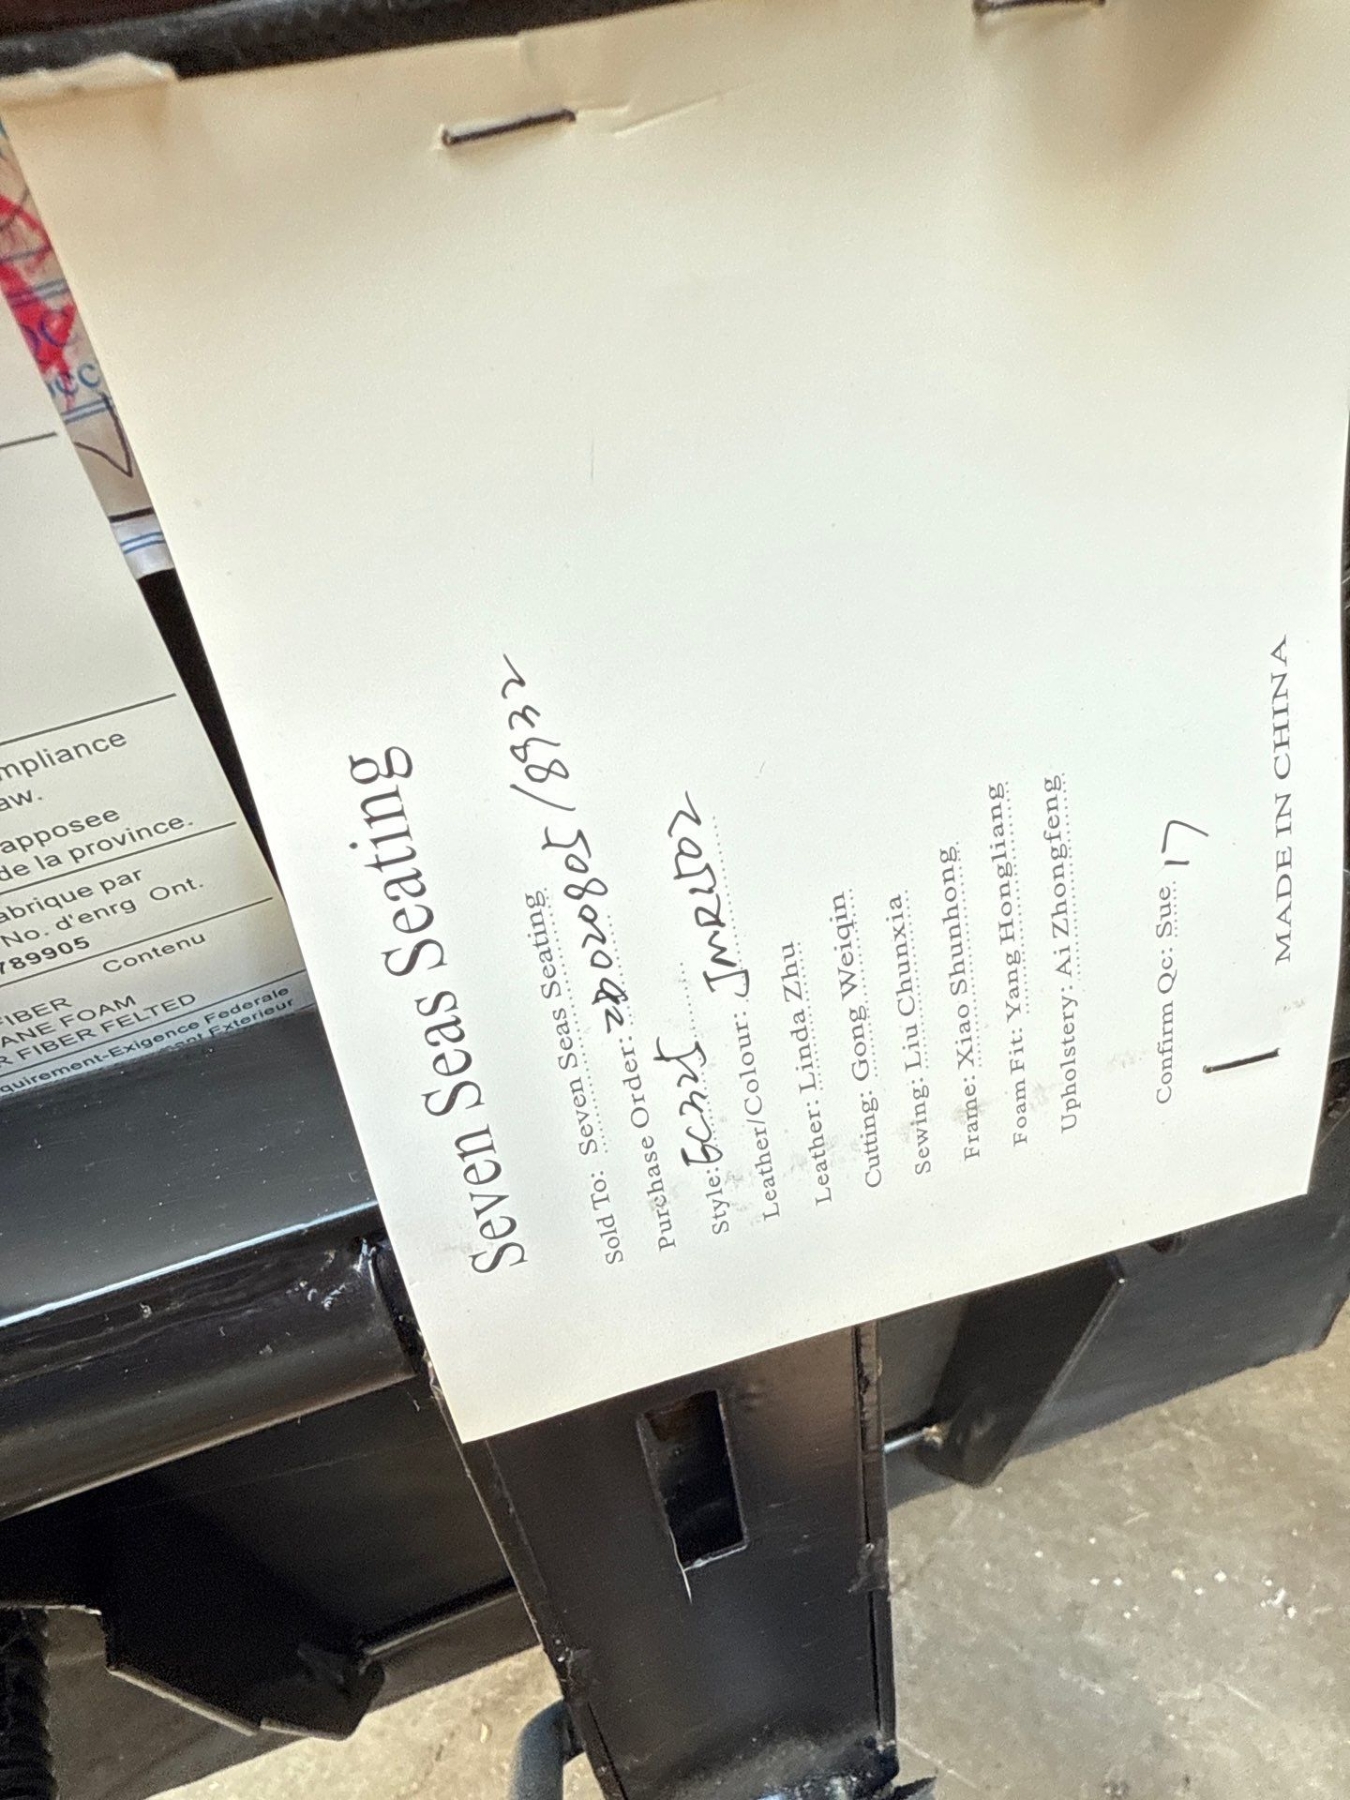 Seven Seas Seating
Sold To: Seven Seas Seating
Purchase Order: ZD020805/8932
Style:
Leather/Colour:
Leather: Linda Zhu
Cutting: Gong Weiqin
Sewing: Liu Chunxia
Frame: Xiao Shunhong
Foam Fit: Yang Hongliang
Upholstery: Ai Zhongfeng
Confirm Qc: Sue 17
MADE IN CHINA
mpliance
aw.
apposee
de la province.
abrique par
No. d'enrg Ont.
789905
Contenu
FIBER
ANE FOAM
R FIBER FELTED
quirement-Exigence Federale
Exterieur